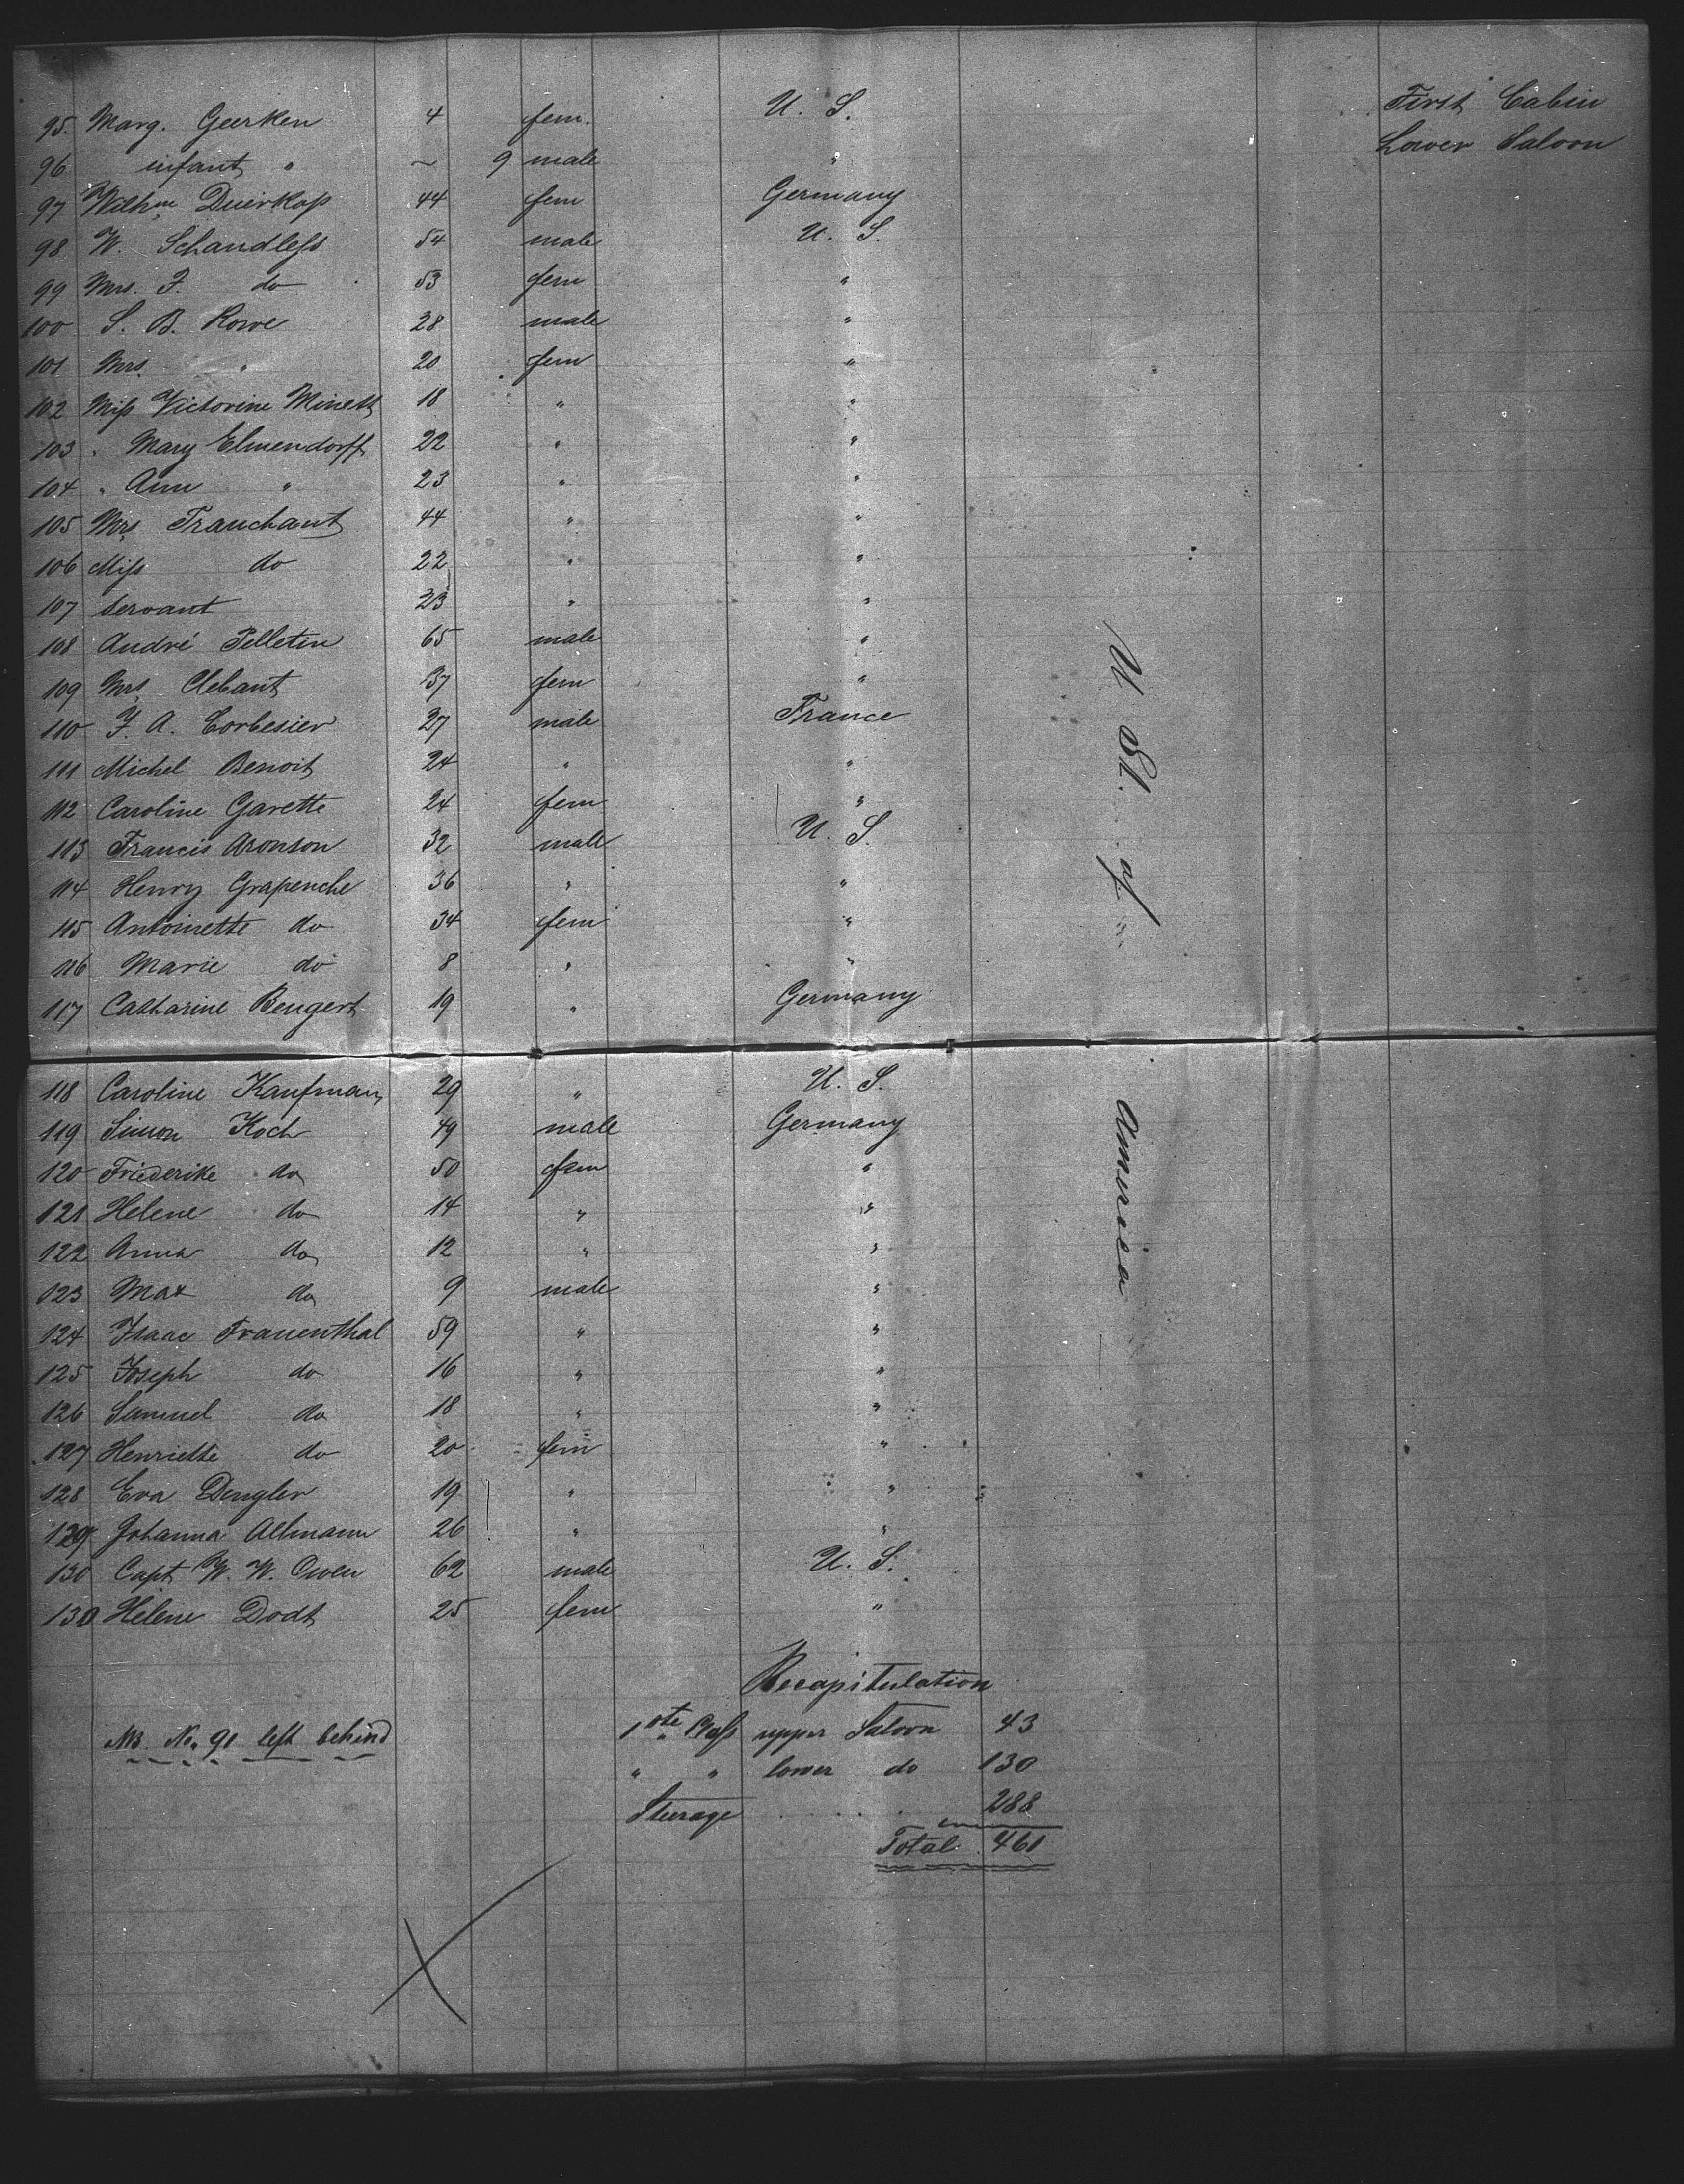 First Cabin
Lower Saloon
95. Marg. Geerken 4 fem. U. S.
96 infant " ~ 9 male "
97 Wilhme Duirkop 44 fem Germany
98 W. Schandless 54 male U. S.
99 Mrs. F. do 53 fem "
100 S. B. Rowe 28 male "
101 Mrs. " 20 fem "
102 Miss Victorine Minett 18 " "
103 " Mary Elmendorff 22 " "
104 " Ann " 23 " "
105 Mrs Tranchant 44 " "
106 Miss do 22 " "
107 Servant 23 " "
108 André Pelletin 65 male "
109 Mrs Clebant 37 fem "
110 F. A. Corbesier 27 male France
111 Michel Benoit 24 " "
112 Caroline Garette 24 fem "
113 Francis Aronson 32 male U. S.
114 Henry Grapenche 36 " "
115 Antoinette do 34 fem "
116 Marie do 8 " "
117 Catharine Bengert 19 " Germany
118 Caroline Kaufman 29 " U. S.
119 Simon Koch 49 male Germany
120 Friederike do 50 fem "
121 Helene do 14 " "
122 Anna do 12 " "
123 Max do 9 male "
124 Isaac Frauenthal 59 " "
125 Joseph do 16 " "
126 Samuel do 18 " "
127 Henriette do 20 fem "
128 Eva Dengler 19 " "
129 Johanna Altmann 26 " "
130 Capt W. W. Owen 62 male U. S.
130 Helene Dodt 25 fem "
U St. of America
Recapitulation
NB. No. 91 left behind
1ste Class upper Saloon 43
" " lower do 130
Sturage 288
Total 461